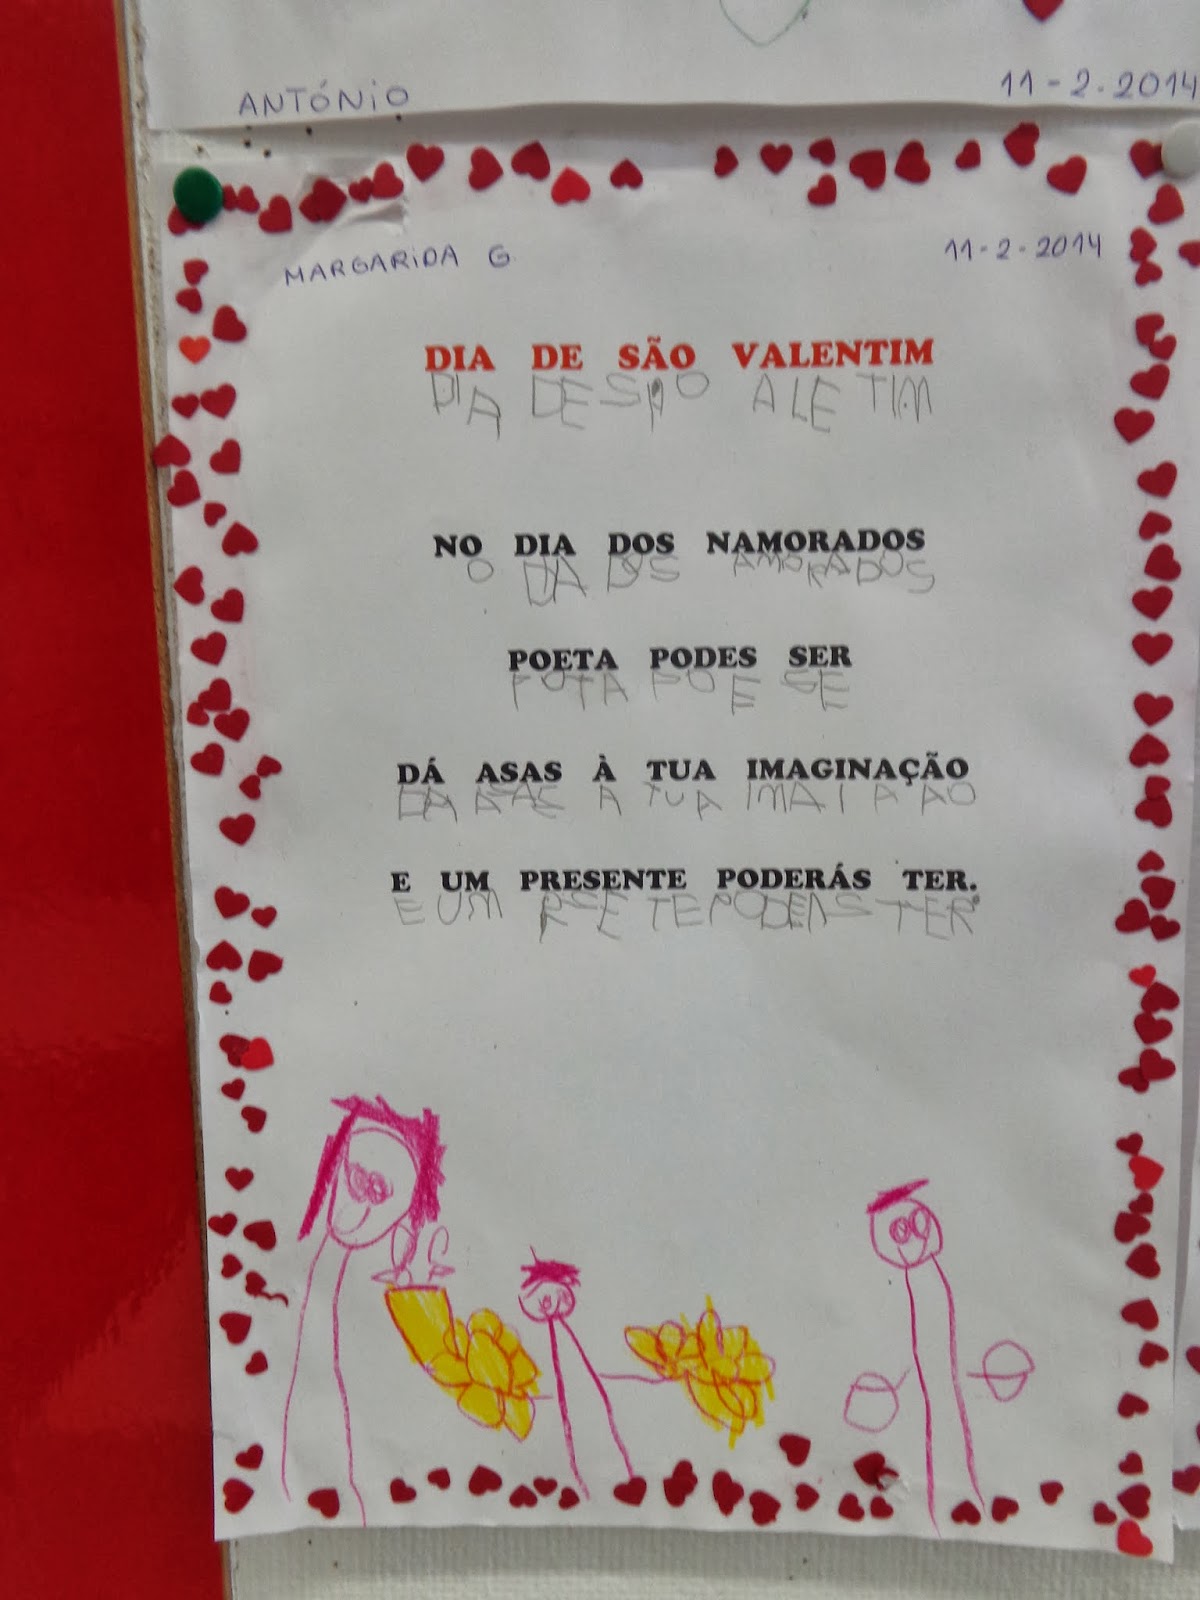 ANTÓNIO 11-2-2014
MARGARIDA G 11-2-2014
DIA DE SÃO VALENTIM
DIA DE SÃO ALETIM
NO DIA DOS NAMORADOS
O DIA DOS AMORADOS
POETA PODES SER
POTA POE SE
DÁ ASAS À TUA IMAGINAÇÃO
DA ASAS A TUA IMAIAAO
E UM PRESENTE PODERÁS TER.
E UM RSETE PODEAS TER